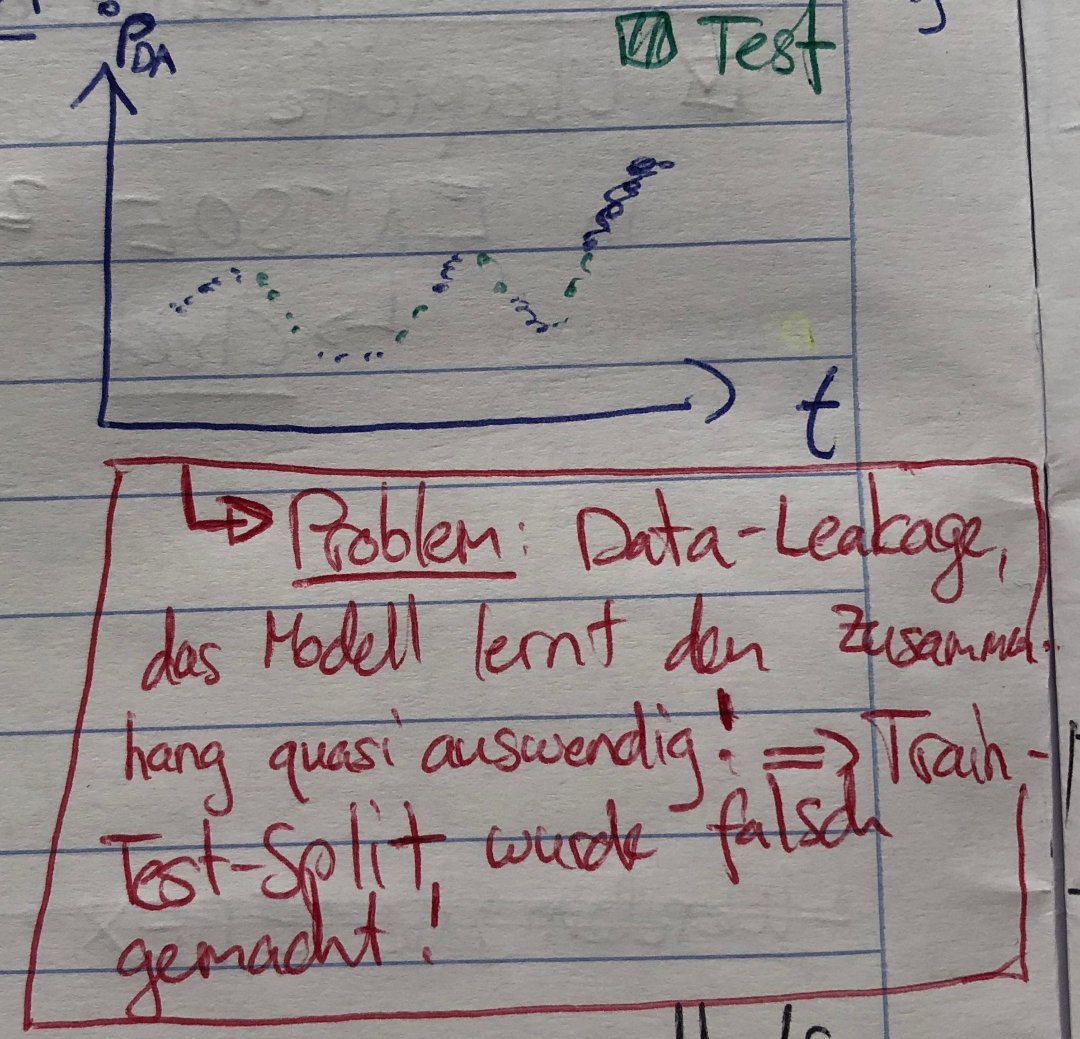 P_DA
Test
t
↳ Problem: Data-Leakage,
das Modell lernt den Zusammen-
hang quasi auswendig! => Train-
Test-Split, wurde falsch
gemacht!